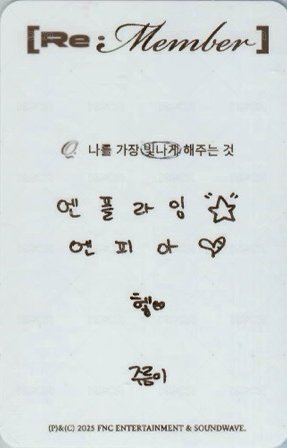 [Re:Member]
Q 나를 가장 빛나게 해주는 것
엔 플 라 잉
엔 피 아
헬
쥬름이
(P)&(C) 2025 FNC ENTERTAINMENT & SOUNDWAVE.